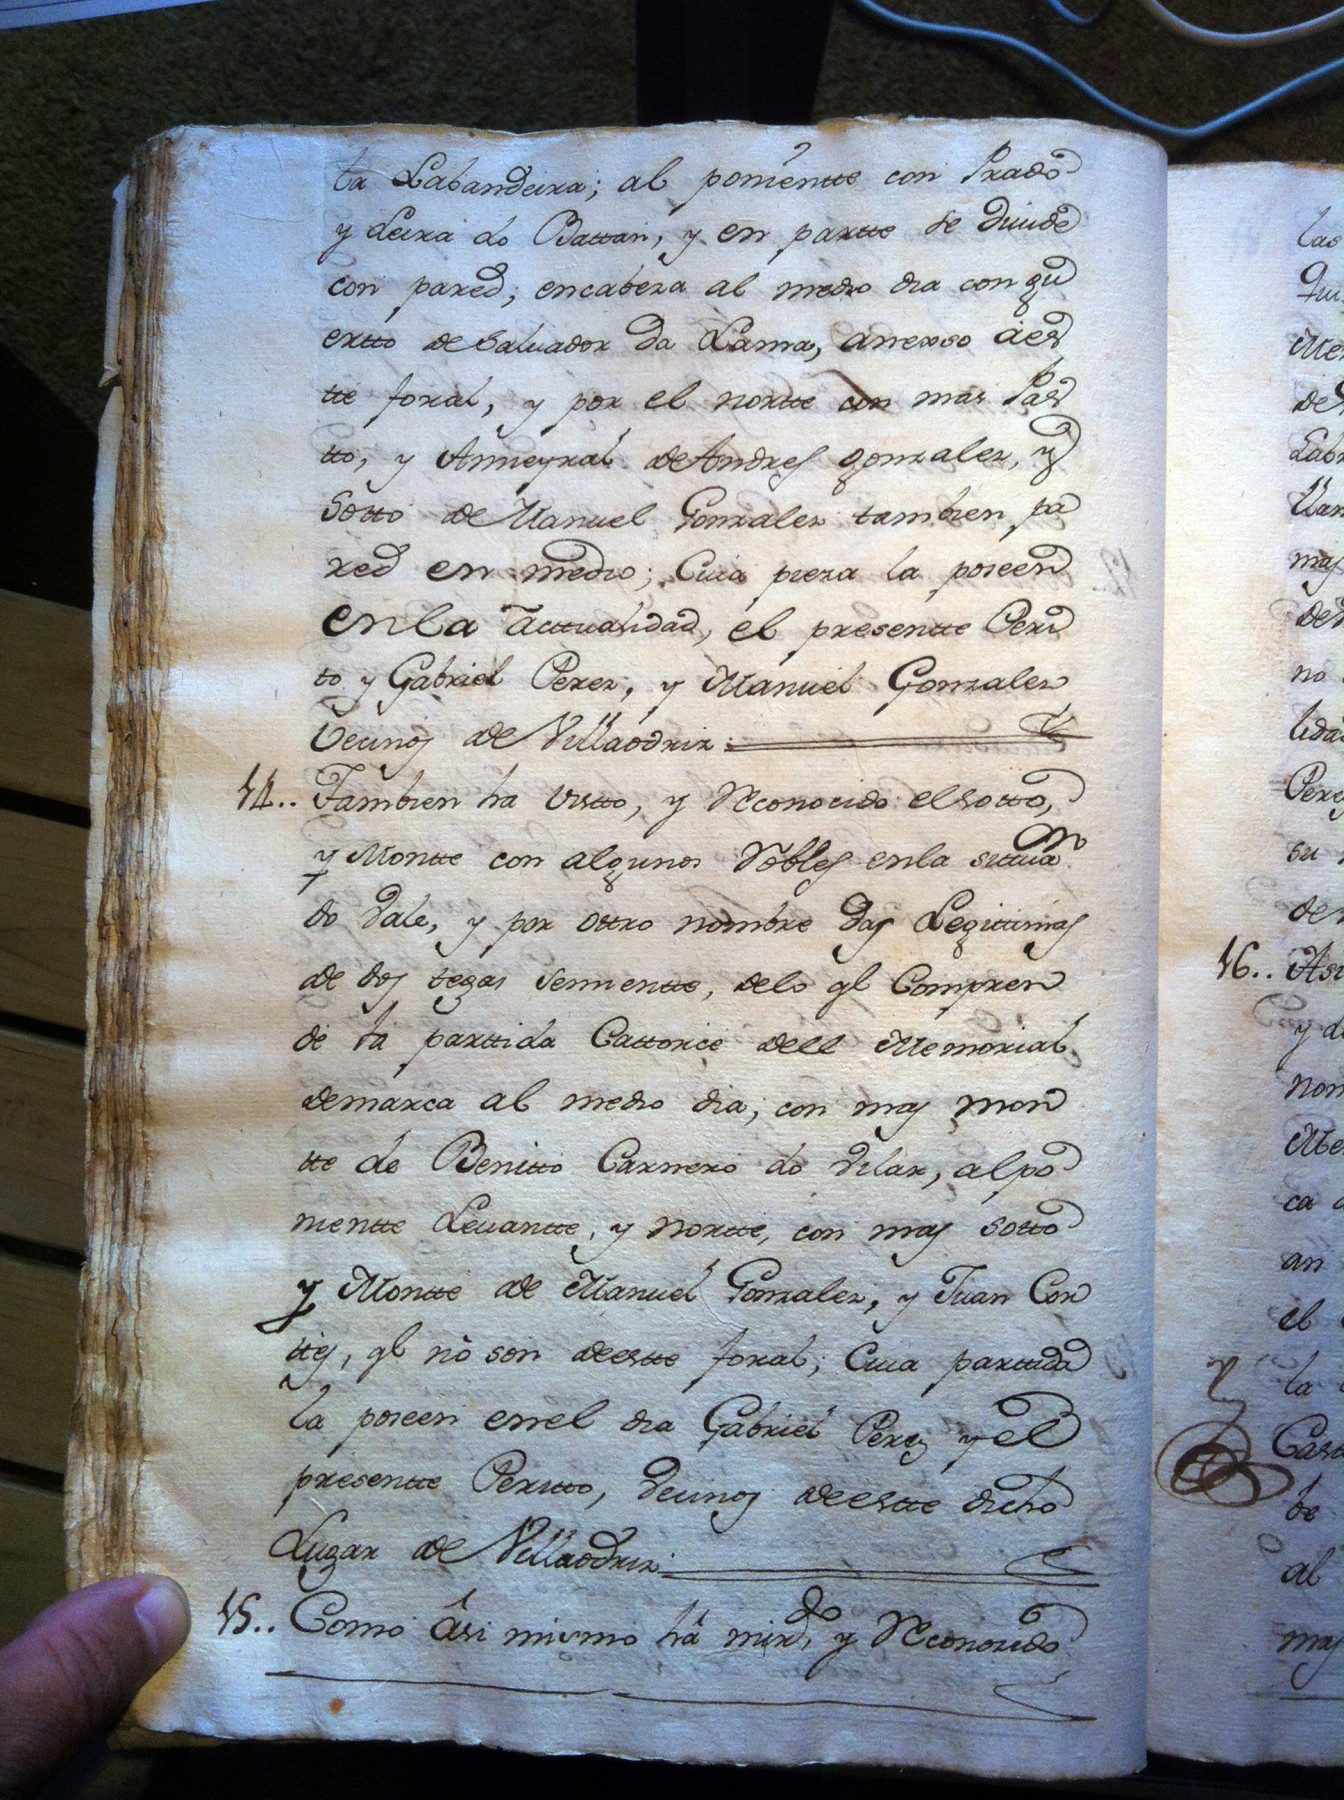 ta Labandeira; al ponientte con Prado
y Leira do Battan, y en partte se diuide
con pared; encabeza al medio dia con gu
ertto de Saluador da Lama, anexso áes
tte foral, y por el nortte con mas Pas
tto, y Ameyral de Andres gonzalez, y
Sotto de Manuel Gonzalez tambien pa
red en medio; Cuia pieza la poseen
enla actualidad, el presentte Peri
to y Gabriel Perez, y Manuel Gonzalez
Vecinos de Villaodriz
14.. Tambien ha visto, y Reconocido el sotto,
y Montte con algunos Robles enla situa on
do Vale, y por ottro nombre das Legittimas
de dos tegas semientte, delo ql Compren
de la parttida Cattorce dell Memorial,
demarca al medio dia, con mas mon
tte de Benitto Carnero do Vilar, al po
nientte Leuantte, y nortte, con mas sotto
y Montte de Manuel Gonzalez, y Juan Cor
ttes, ql nó son deestte foral; Cuia parttida
la poseen enel dia Gabriel Perez y el
presentte Peritto, Vecinos deestte dicho
Lugar de Villaodriz
15.. Como ási mismo há mirdo, y Reconocido
las
Qui
Mem
de
Labr
Man
mas
de
no
lida
Pere
su
de
16.. Asi
y d
nom
Me
ca
an
el
la
Cas
be
al
mas